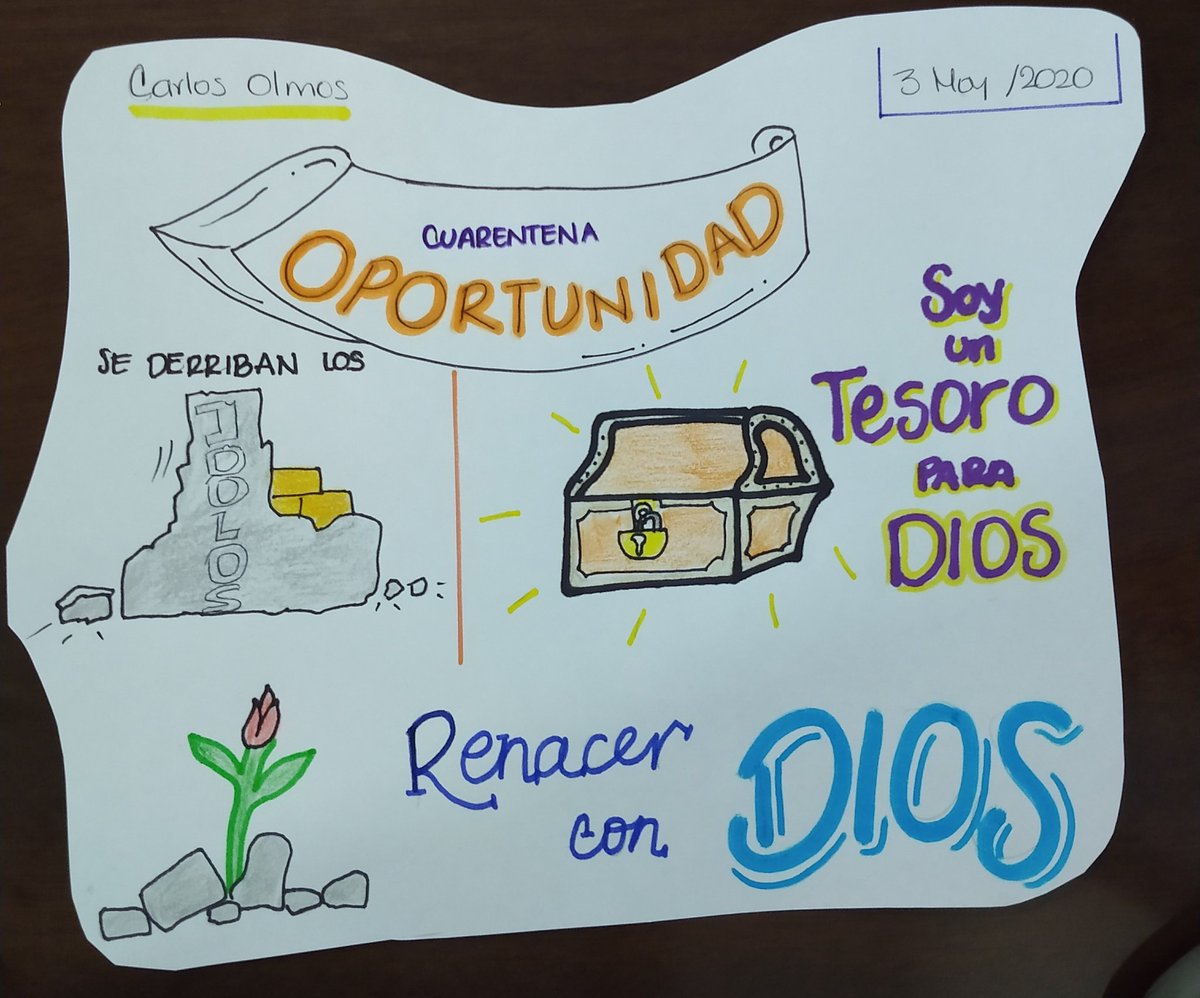 Carlos Olmos
3 May /2020
CUARENTENA
OPORTUNIDAD
SE DERRIBAN LOS
IDOLOS
Soy
un
Tesoro
PARA
DIOS
Renacer
con
DIOS